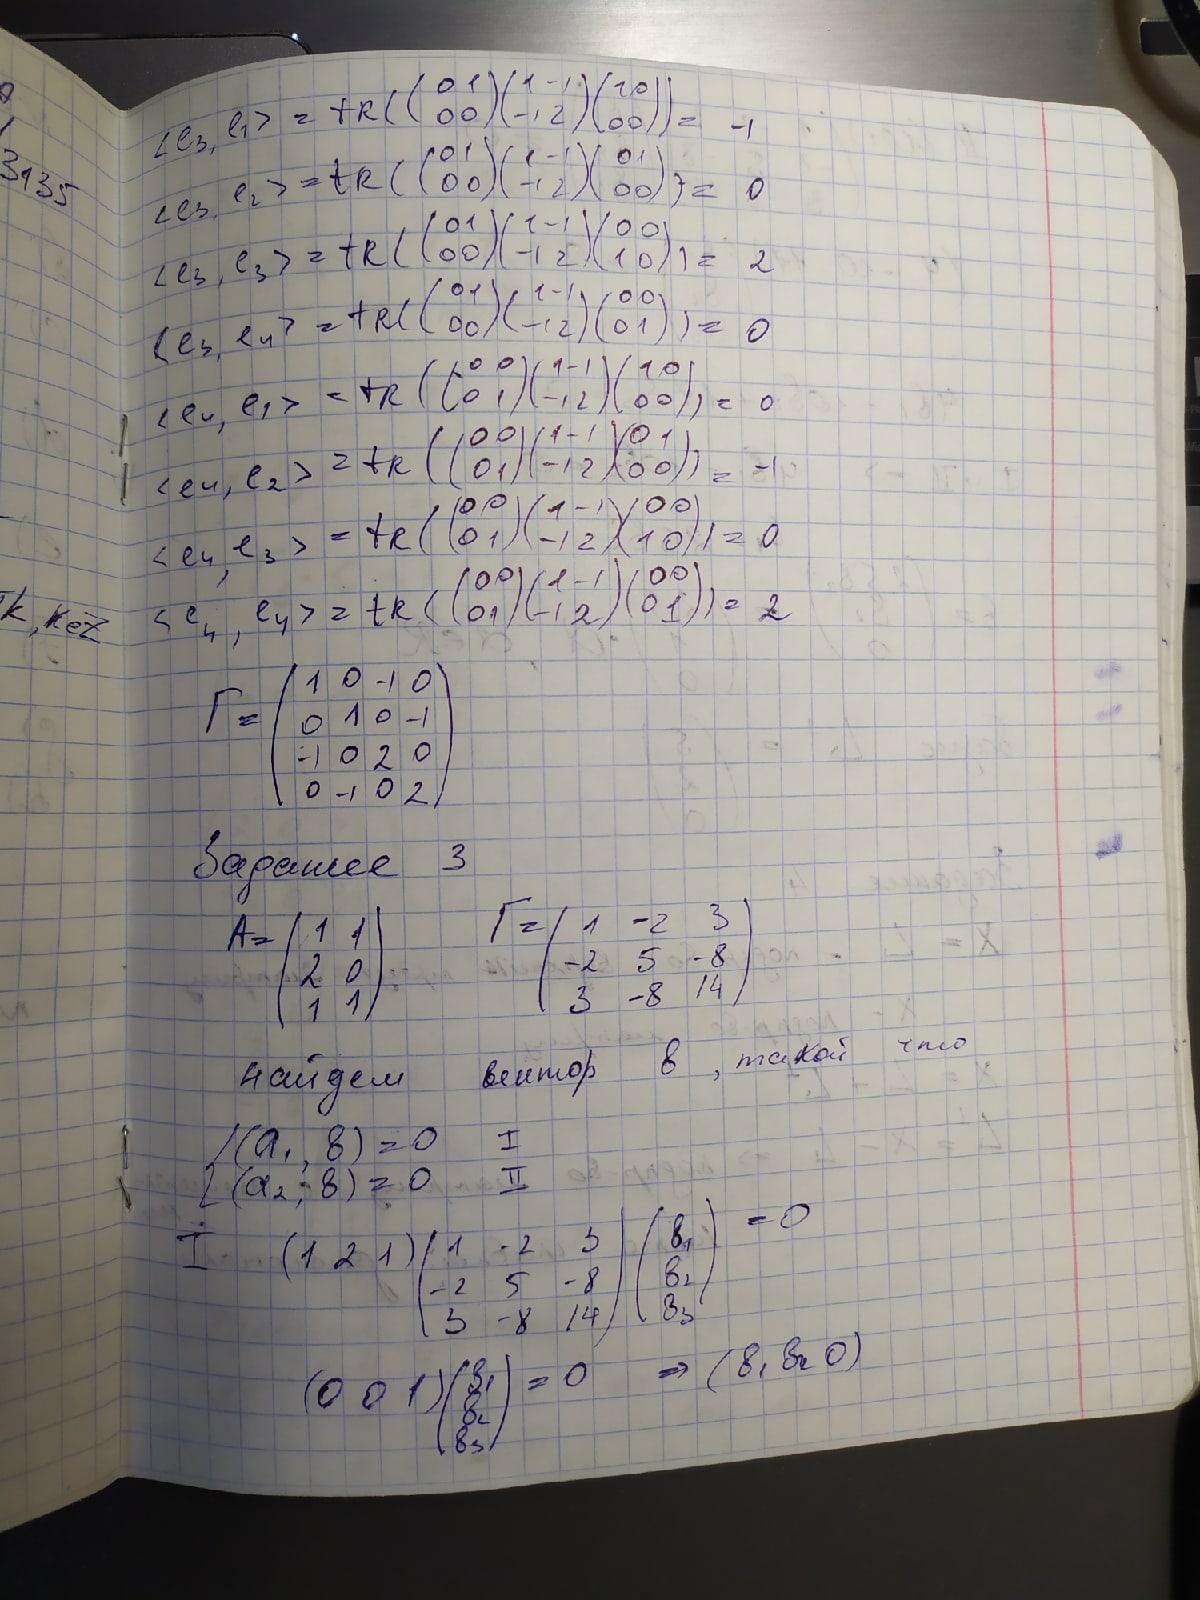 3135
k, k∈Z
<e₃, e₁> = tR((0 1 / 0 0)(1 -1 / -1 2)(1 0 / 0 0)) = -1
<e₃, e₂> = tR((0 1 / 0 0)(1 -1 / -1 2)(0 1 / 0 0)) = 0
<e₃, e₃> = tR((0 1 / 0 0)(1 -1 / -1 2)(0 0 / 1 0)) = 2
<e₃, e₄> = tR((0 1 / 0 0)(1 -1 / -1 2)(0 0 / 0 1)) = 0
<e₄, e₁> = tR((0 0 / 0 1)(1 -1 / -1 2)(1 0 / 0 0)) = 0
<e₄, e₂> = tR((0 0 / 0 1)(1 -1 / -1 2)(0 1 / 0 0)) = -1
<e₄, e₃> = tR((0 0 / 0 1)(1 -1 / -1 2)(0 0 / 1 0)) = 0
<e₄, e₄> = tR((0 0 / 0 1)(1 -1 / -1 2)(0 0 / 0 1)) = 2
Γ = (1 0 -1 0
0 1 0 -1
-1 0 2 0
0 -1 0 2)
Задание 3
A = (1 1 Γ = (1 -2 3
2 0 -2 5 -8
1 1) 3 -8 14)
найдем вектор в, такой что
{(a₁, в) = 0 I
(a₂, в) = 0 II
I (1 2 1)(1 -2 3 (в₁ = 0
-2 5 -8 в₂
3 -8 14) в₃)
(0 0 1)(в₁ = 0 ⇒ (в₁ в₂ 0)
в₂
в₃)